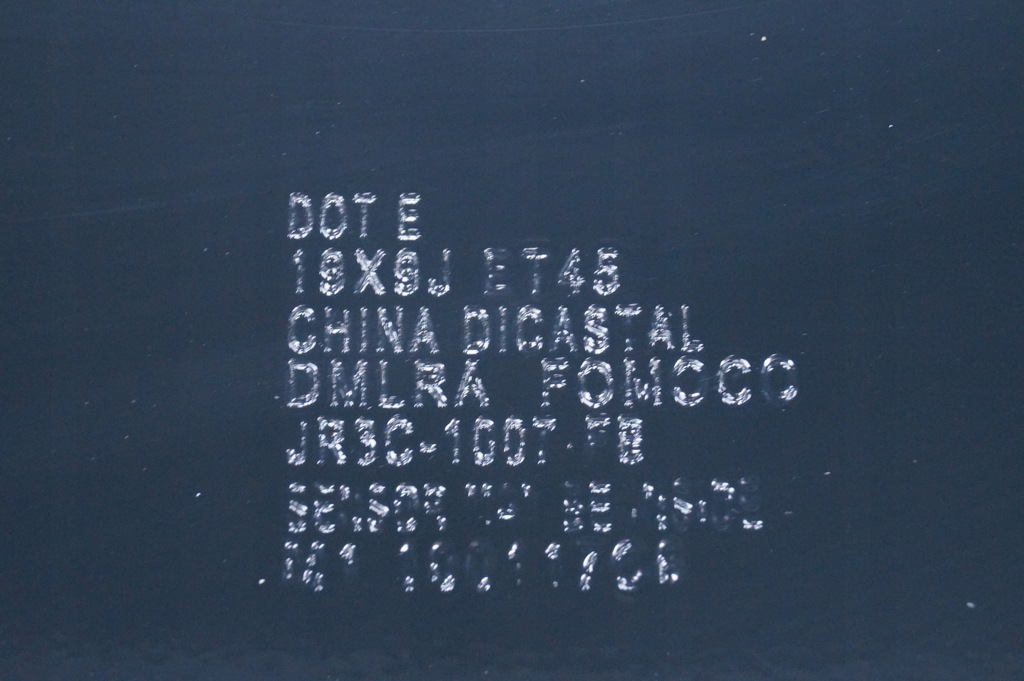 DOT E
19X9J ET45
CHINA DICASTAL
DMLRA FOMOCO
JR3C-1007-
SENSOR BE